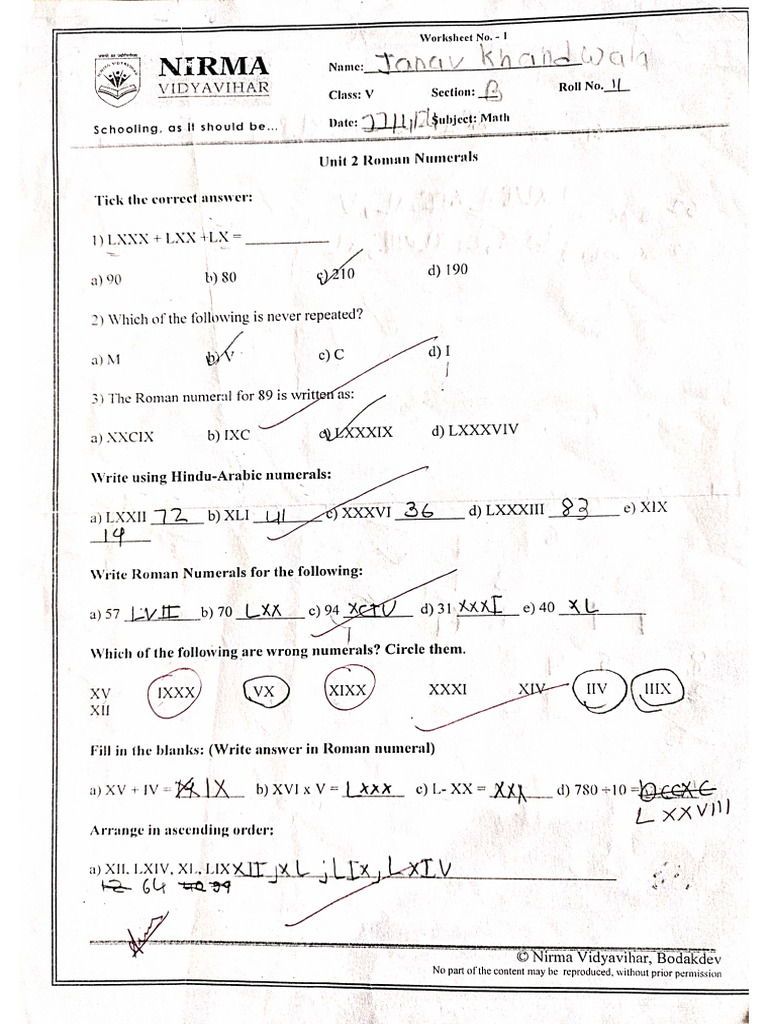 Worksheet No. - 1
NiRMA
VIDYAVIHAR
Schooling, as it should be...
Name: Janav Khandwala
Class: V Section: B Roll No. 11
Date: Subject: Math
Unit 2 Roman Numerals
Tick the correct answer:
1) LXXX + LXX +LX = ___________
a) 90 b) 80 c) 210 d) 190
2) Which of the following is never repeated?
a) M b) V c) C d) I
3) The Roman numeral for 89 is written as:
a) XXCIX b) IXC c) LXXXIX d) LXXXVIV
Write using Hindu-Arabic numerals:
a) LXXII 72 b) XLI 41 c) XXXVI 36 d) LXXXIII 83 e) XIX
19
Write Roman Numerals for the following:
a) 57 LVII b) 70 LXX c) 94 XCIV d) 31 XXXI e) 40 XL
Which of the following are wrong numerals? Circle them.
XV IXXX VX XIXX XXXI XIV IIV IIIX
XII
Fill in the blanks: (Write answer in Roman numeral)
a) XV + IV = XIX b) XVI x V = LXXX c) L- XX = XXX d) 780 ÷10 = DCCXC
LXXVIII
Arrange in ascending order:
a) XII, LXIV, XL, LIX XII ; XL ; LIX ; LXIV
12 64 40 99
© Nirma Vidyavihar, Bodakdev
No part of the content may be reproduced, without prior permission